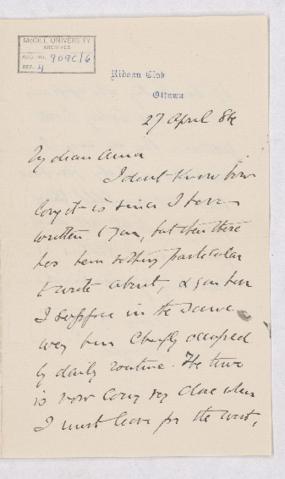 McGILL UNIVERSITY
ARCHIVES
ACC. NO. 909C/6
REF. 4
Rideau Club
Ottawa
27 April 84
My dear Anna
I dont know how
long it is since I have
written to you, but then there
has been nothing particular
to write about, & you have
I suppose in the same
way been chiefly occupied
by daily routine. The time
is now very close when
I must leave for the West,